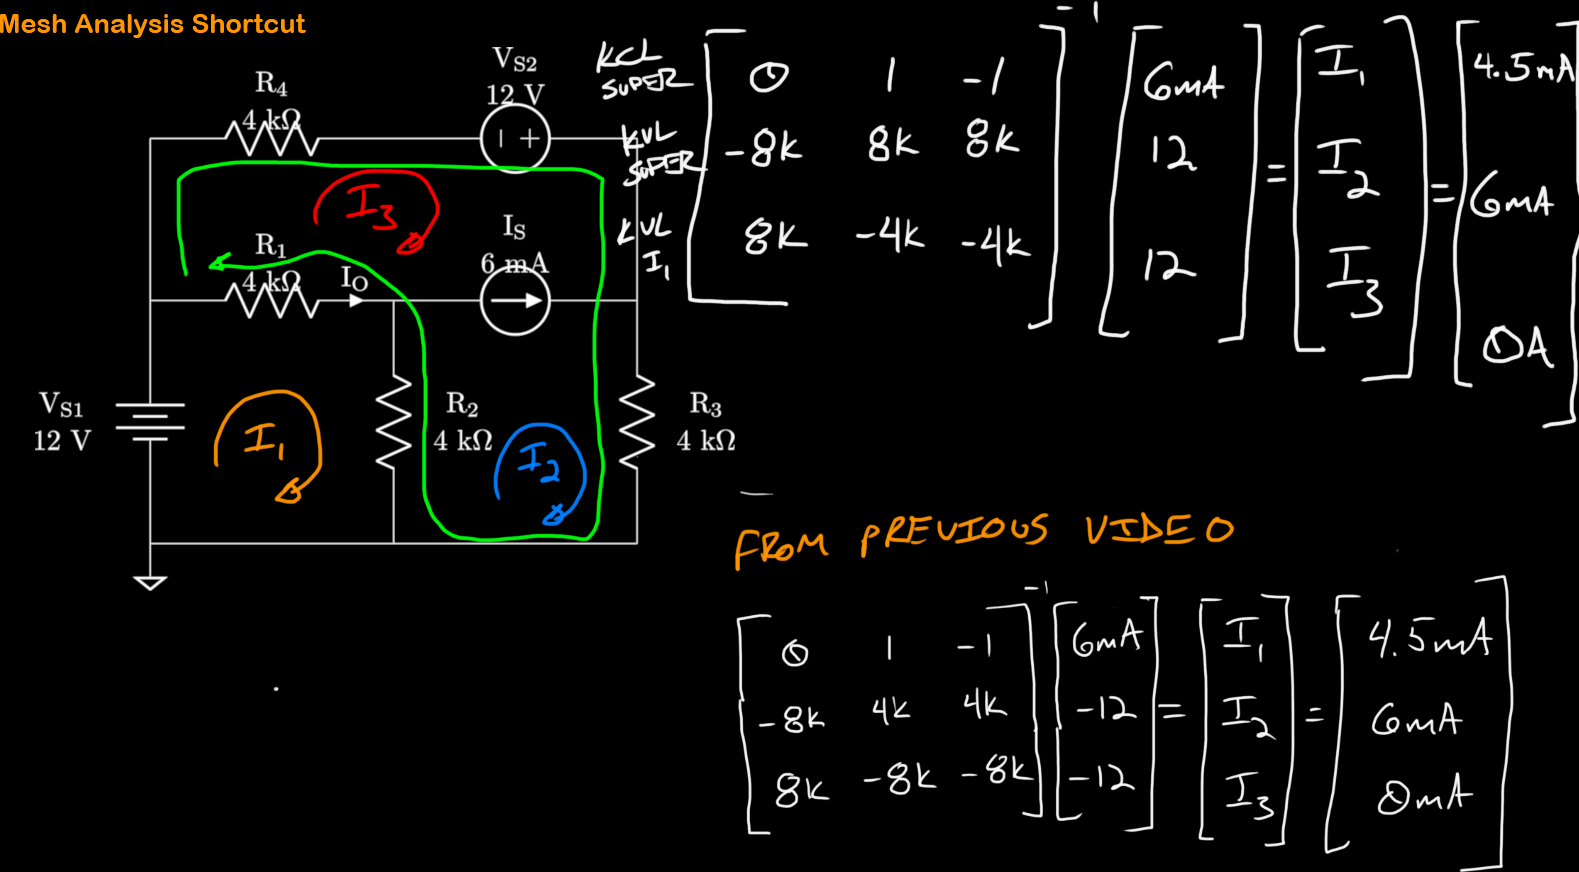 Mesh Analysis Shortcut
R4
4 kΩ
VS2
12 V
I3
R1
4 kΩ
IO
IS
6 mA
VS1
12 V
I1
R2
4 kΩ
I2
R3
4 kΩ
KCL SUPER 0 1 -1
KVL SUPER -8k 8k 8k
KVL I1 8k -4k -4k
-1
6mA
12
12
=
I1
I2
I3
=
4.5mA
6mA
0A
FROM PREVIOUS VIDEO
0 1 -1
-8k 4k 4k
8k -8k -8k
-1
6mA
-12
-12
=
I1
I2
I3
=
4.5mA
6mA
0mA